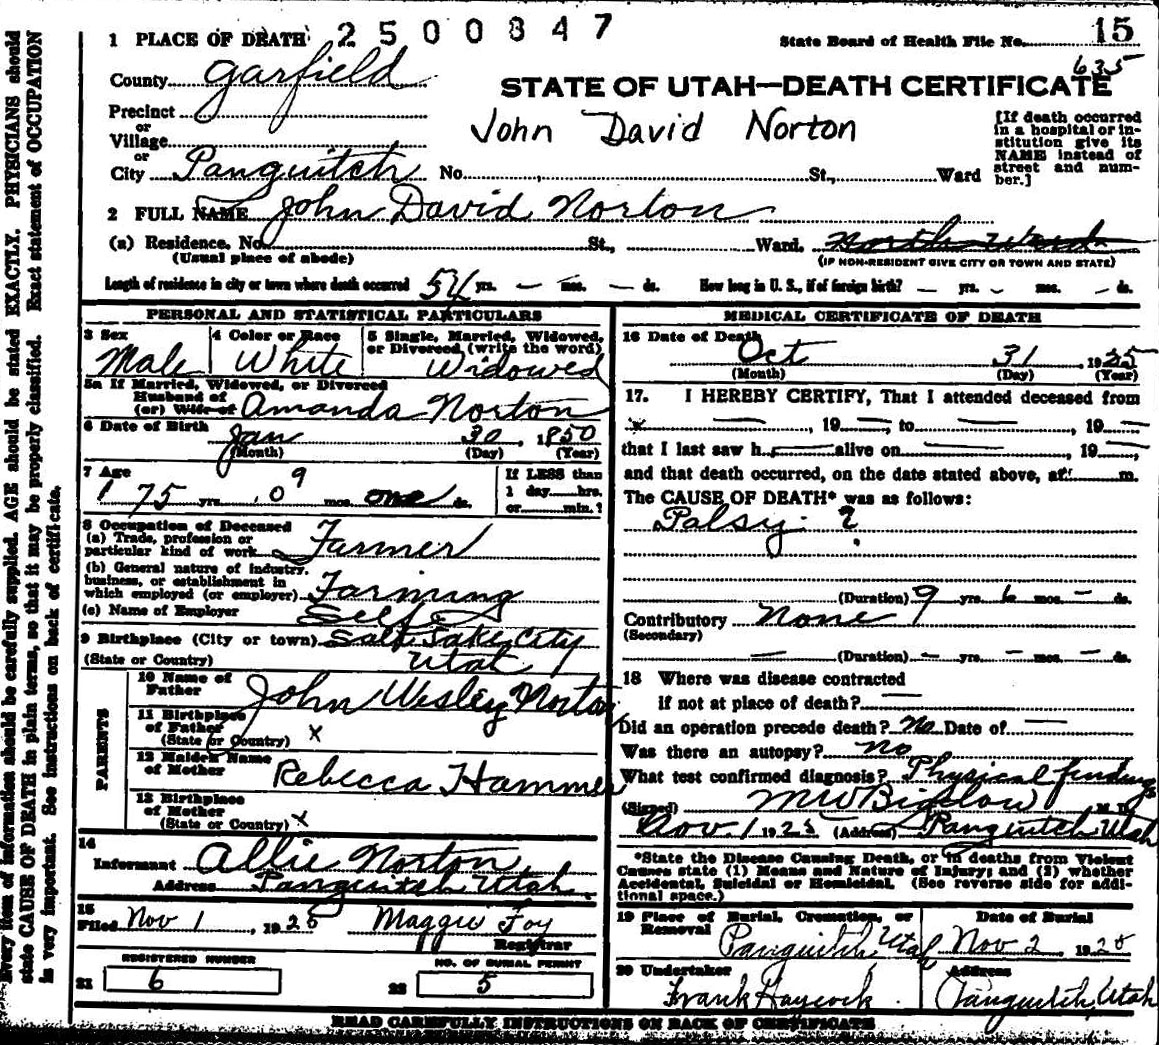 2500847
1 PLACE OF DEATH
State Board of Health File No. 15
635
County Garfield
STATE OF UTAH—DEATH CERTIFICATE
Precinct
or
Village
or
City Panguitch No. St., Ward
John David Norton
[If death occurred
in a hospital or in-
stitution give its
NAME instead of
street and num-
ber.]
2 FULL NAME John David Norton
(a) Residence, No. St., Ward, North Ward
(Usual place of abode)
(IF NON-RESIDENT GIVE CITY OR TOWN AND STATE)
Length of residence in city or town where death occurred 54 yrs. — mos. — ds. How long in U. S., if of foreign birth? — yrs. — mos. — ds.
PERSONAL AND STATISTICAL PARTICULARS
3 Sex
Male
4 Color or Race
White
5 Single, Married, Widowed,
or Divorced, (write the word)
Widowed
5a If Married, Widowed, or Divorced
Husband of
(or) Wife of Amanda Norton
6 Date of Birth
Jan 30, 1850
(Month) (Day) (Year)
7 Age
75 yrs. 9 mos. one ds.
If LESS than
1 day hrs.
or min.?
8 Occupation of Deceased
(a) Trade, profession or
particular kind of work Farmer
(b) General nature of industry,
business, or establishment in
which employed (or employer) Farming
(c) Name of Employer Self
9 Birthplace (City or town) Salt Lake City
(State or Country) Utah
PARENTS
10 Name of
Father John Wesley Norton
11 Birthplace
of Father
(State or Country) x
12 Maiden Name
of Mother Rebecca Hammer
13 Birthplace
of Mother
(State or Country) x
14
Informant Allie Norton
Address Panguitch Utah
15
Filed Nov 1, 1925 Maggie Foy
Registrar
REGISTERED NUMBER
21 6
NO. OF BURIAL PERMIT
22 5
MEDICAL CERTIFICATE OF DEATH
16 Date of Death
Oct 31 1925
(Month) (Day) (Year)
17. I HEREBY CERTIFY, That I attended deceased from
x —, 19 — to —, 19 —
that I last saw h— alive on —, 19 —
and that death occurred, on the date stated above, at m.
The CAUSE OF DEATH* was as follows:
Palsy ?
(Duration) 9 yrs. 6 mos. — ds.
Contributory None
(Secondary)
— (Duration) — yrs. — mos. — ds.
18 Where was disease contracted
if not at place of death? —
Did an operation precede death? No Date of —
Was there an autopsy? No
What test confirmed diagnosis? Physical findings
(Signed) M W Bigelow M. D.
Nov 1 1925 (Address) Panguitch Utah
*State the Disease Causing Death, or in deaths from Violent
Causes state (1) Means and Nature of Injury; and (2) whether
Accidental, Suicidal or Homicidal. (See reverse side for addi-
tional space.)
19 Place of Burial, Cremation, or
Removal
Panguitch Utah
Date of Burial
Nov 2 1925
20 Undertaker
Frank Haycock
Address
Panguitch, Utah
READ CAREFULLY INSTRUCTIONS ON BACK OF CERTIFICATE
Every item of information should be carefully supplied. AGE should be stated EXACTLY. PHYSICIANS should
state CAUSE OF DEATH in plain terms, so that it may be properly classified. Exact statement of OCCUPATION
is very important. See instructions on back of certificate.